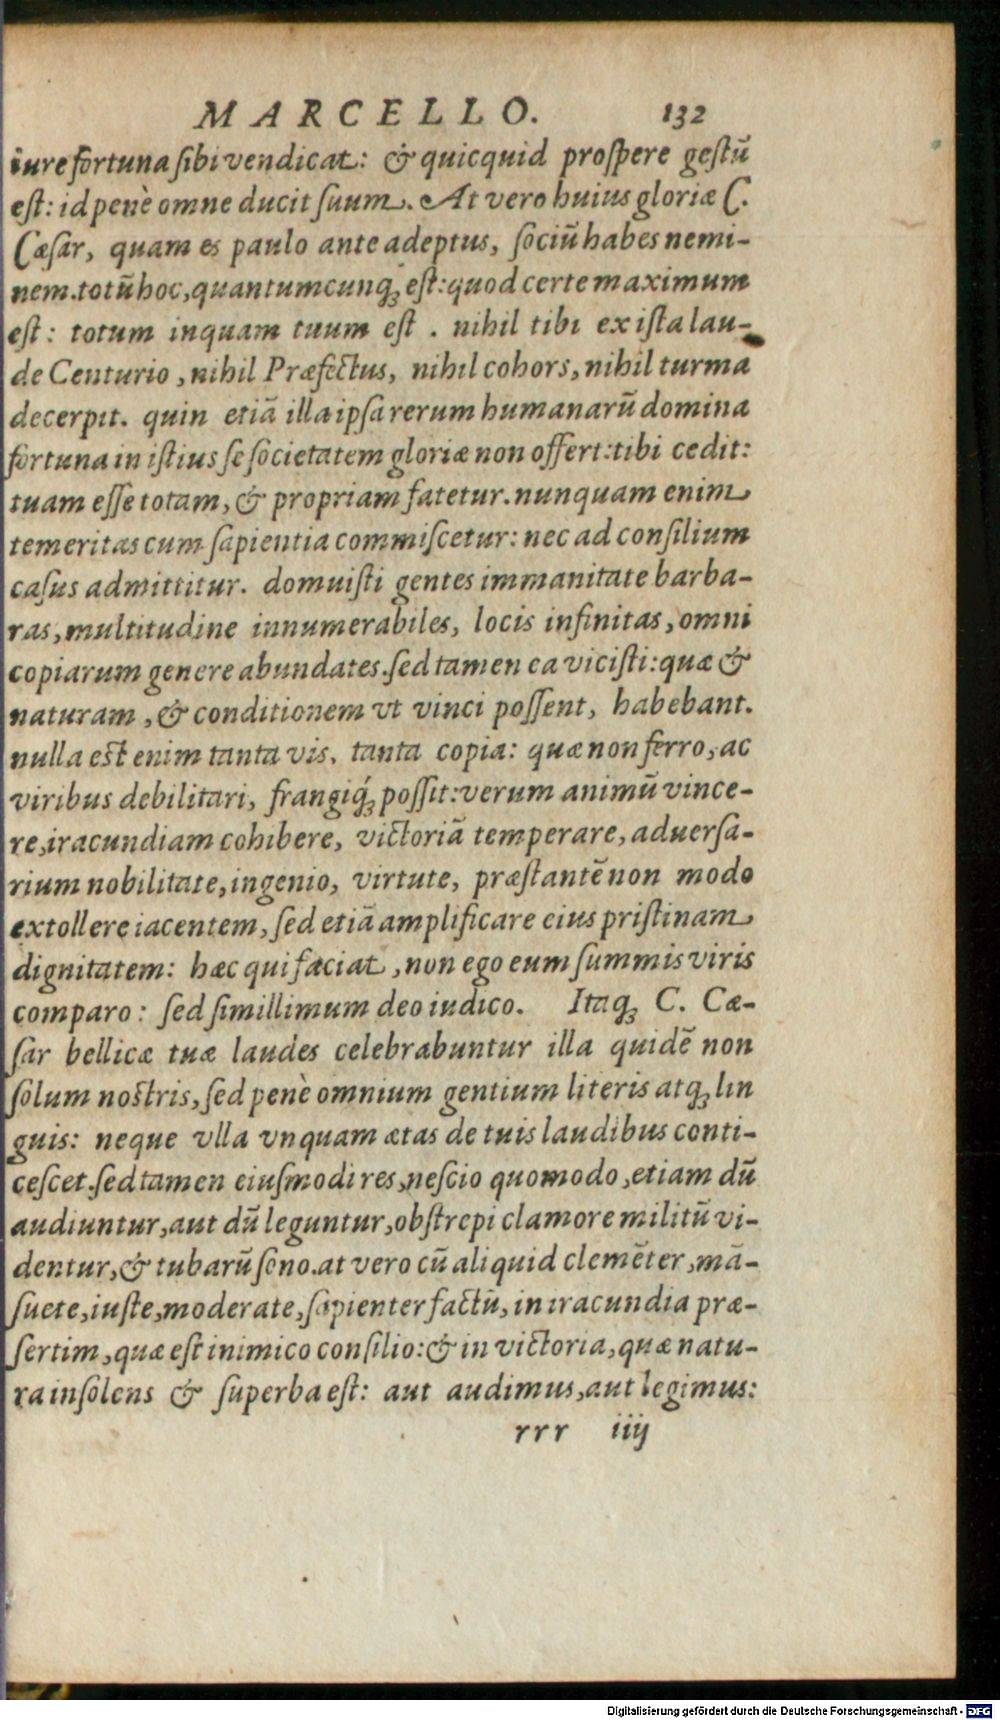 MARCELLO. 132
iure fortuna sibi vendicat: & quicquid prospere gestū
est: id penè omne ducit suum. At vero huius gloriæ C.
Cæsar, quam es paulo ante adeptus, sociū habes nemi-
nem. totū hoc, quantumcunq; est: quod certe maximum
est: totum inquam tuum est . nihil tibi ex ista lau-
de Centurio , nihil Præfectus, nihil cohors, nihil turma
decerpit. quin etiā illa ipsa rerum humanarū domina
fortuna in istius se societatem gloriæ non offert: tibi cedit:
tuam esse totam, & propriam fatetur. nunquam enim
temeritas cum sapientia commiscetur: nec ad consilium
casus admittitur. domuisti gentes immanitate barba-
ras, multitudine innumerabiles, locis infinitas, omni
copiarum genere abundates. sed tamen ea vicisti: quæ &
naturam , & conditionem vt vinci possent, habebant.
nulla est enim tanta vis, tanta copia: quæ non ferro, ac
viribus debilitari, frangiq́; possit: verum animū vince-
re, iracundiam cohibere, victoriā temperare, aduersa-
rium nobilitate, ingenio, virtute, præstantē non modo
extollere iacentem, sed etiā amplificare eius pristinam
dignitatem: hæc qui faciat , non ego eum summis viris
comparo: sed simillimum deo iudico. Itaq; C. Cæ-
sar bellicæ tuæ laudes celebrabuntur illa quidē non
solum nostris, sed penè omnium gentium literis atq; lin
guis: neque vlla vnquam ætas de tuis laudibus conti-
cescet. sed tamen eiusmodi res, nescio quomodo , etiam dū
audiuntur, aut dū leguntur, obstrepi clamore militū vi-
dentur, & tubarū sono. at vero cū aliquid clemēter , mā-
suete, iuste, moderate, sapienter factū, in iracundia præ-
sertim, quæ est inimico consilio: & in victoria, quæ natu-
ra insolens & superba est: aut audimus, aut legimus:
rrr iiij
Digitalisierung gefördert durch die Deutsche Forschungsgemeinschaft - DFG